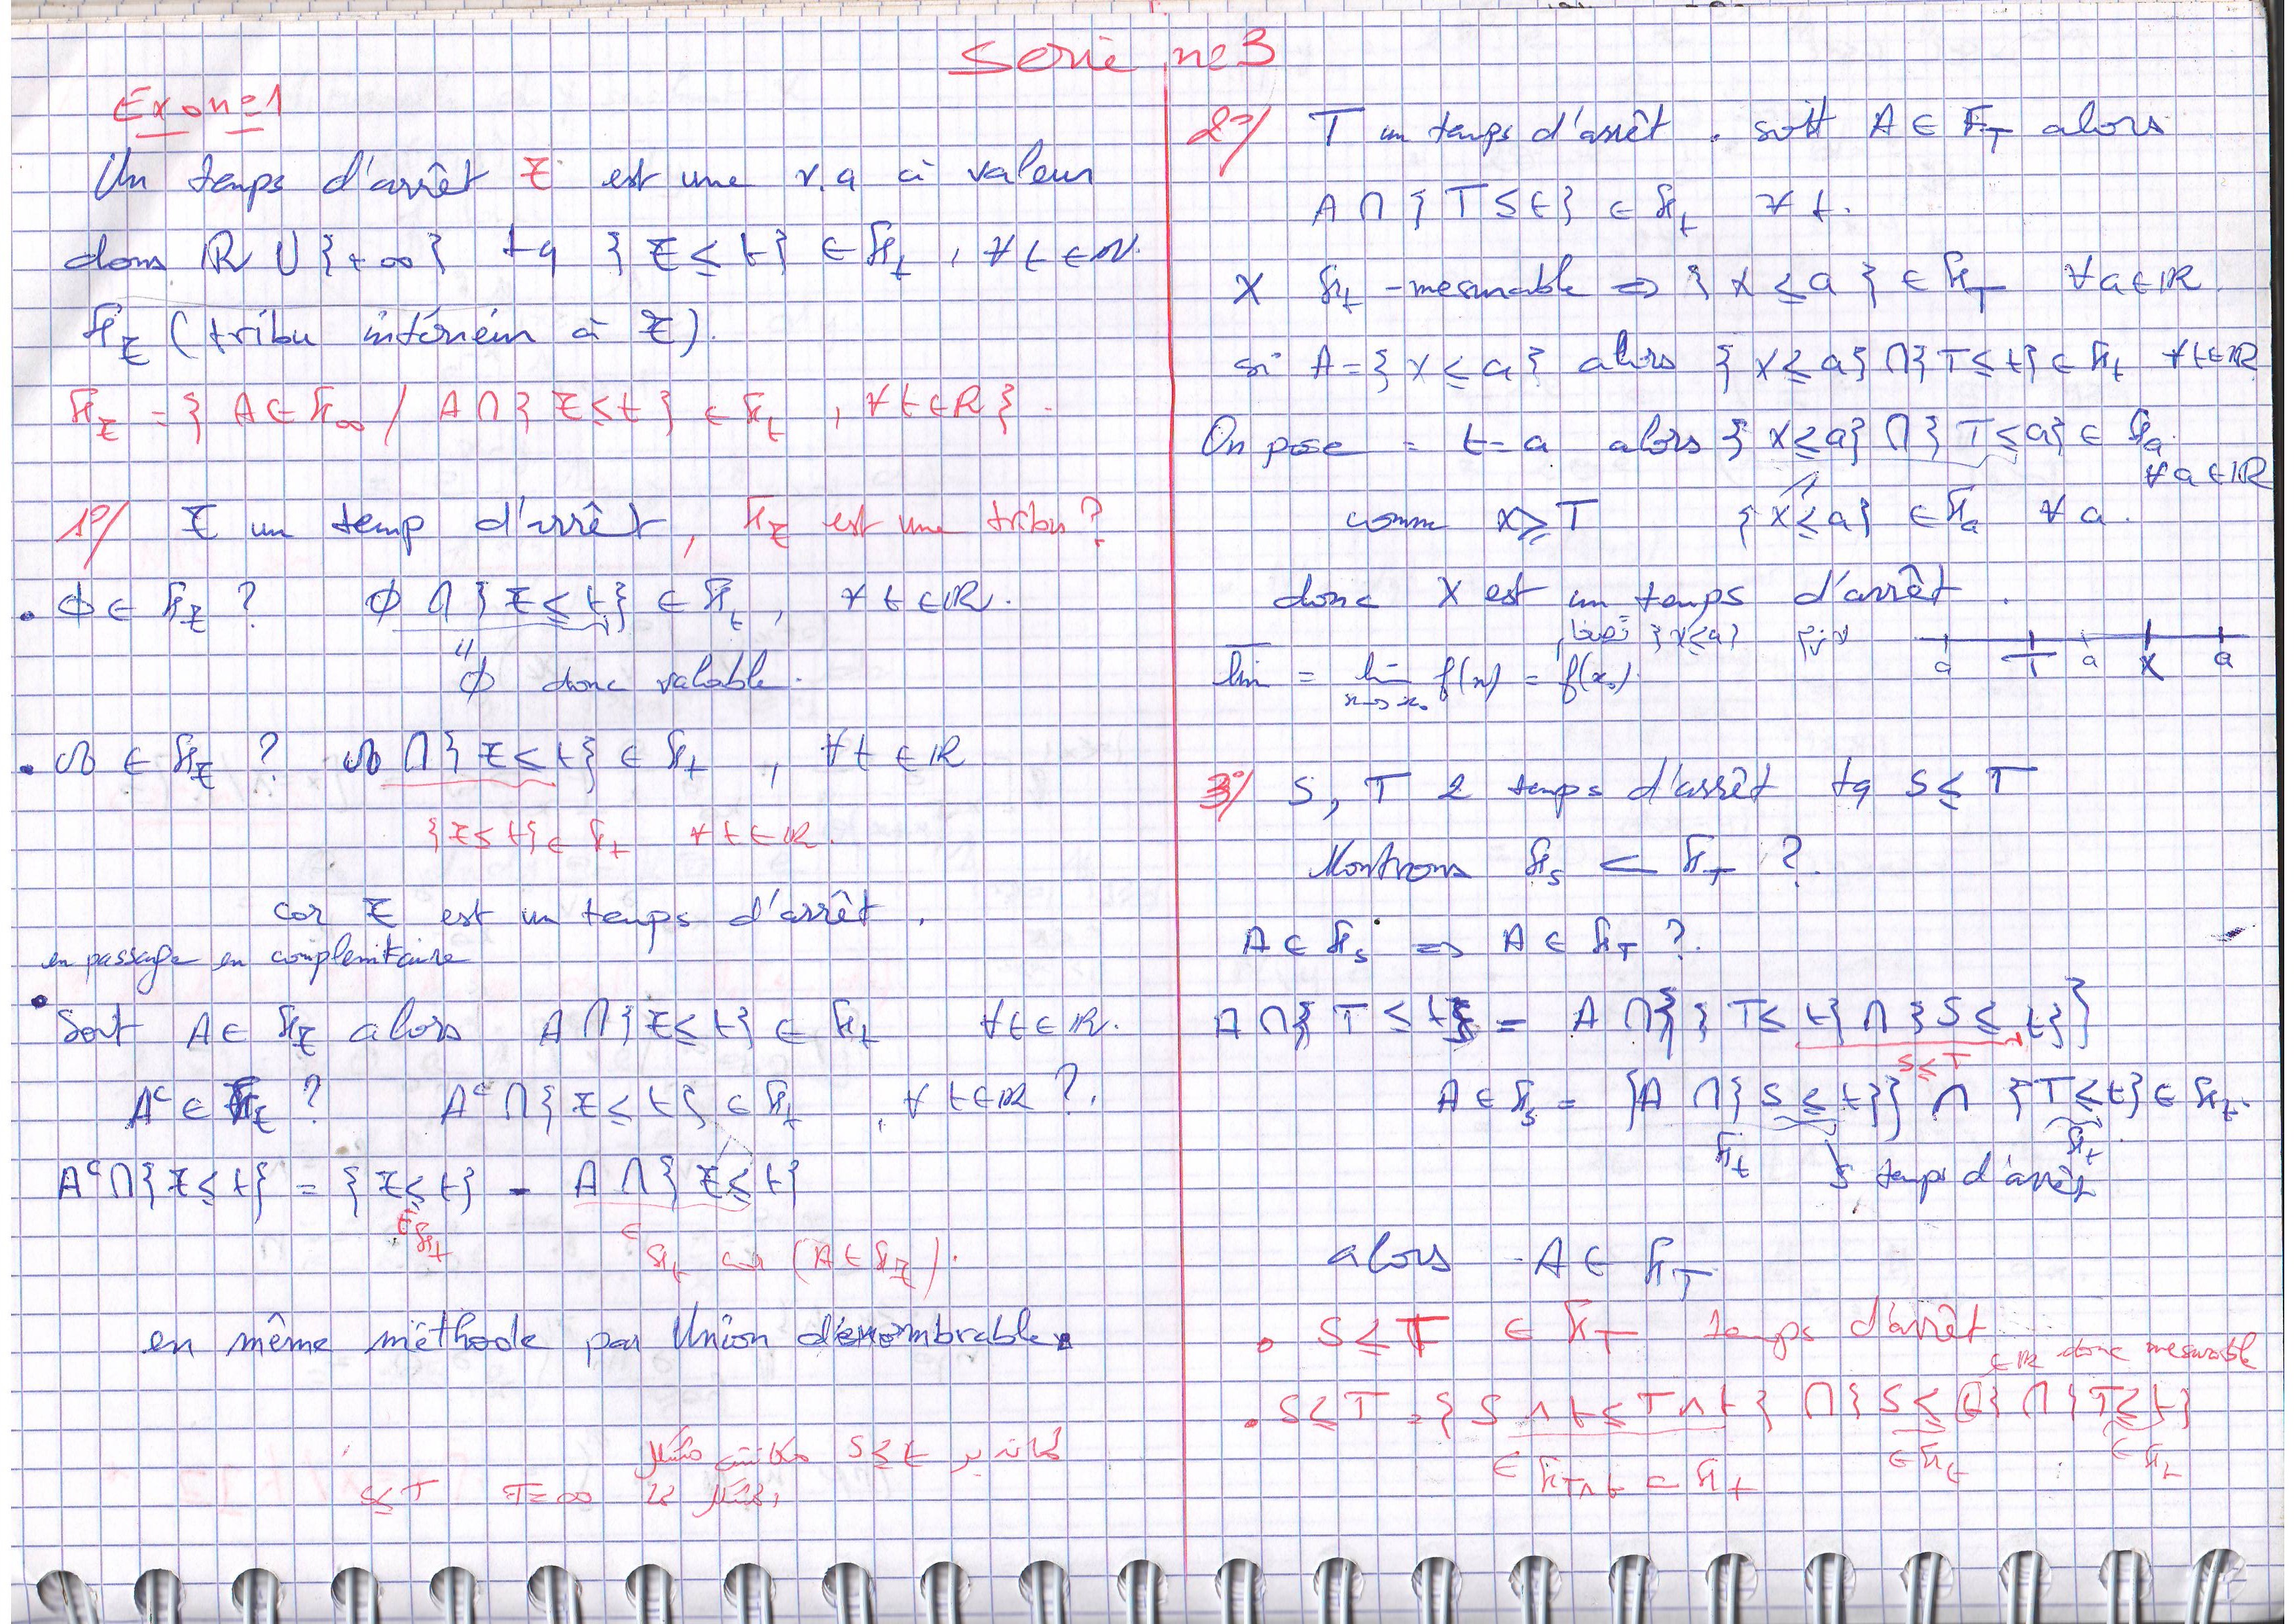 Serie n°3
Exo n=1
Un temps d'arrêt Z est une v.a à valeur
dans ℝ ∪ {+∞} tq {Z ≤ t} ∈ ℱ_t , ∀t ∈
ℱ_Z (tribu intérieur à Z).
ℱ_Z = { A ∈ ℱ_∞ / A ∩ {Z ≤ t} ∈ ℱ_t , ∀t ∈ ℝ }.
1°/ Z un temp d'arrêt, ℱ_Z est une tribu ?
• ϕ ∈ ℱ_Z ? ϕ ∩ {Z ≤ t} ∈ ℱ_t , ∀t ∈ ℝ.
" ϕ donc valable.
• Ω ∈ ℱ_Z ? Ω ∩ {Z ≤ t} ∈ ℱ_t , ∀t ∈ ℝ
{Z ≤ t} ∈ ℱ_t ∀t ∈ ℝ.
car Z est un temps d'arrêt.
en passage en complemitaire
• Soit A ∈ ℱ_Z alors A ∩ {Z ≤ t} ∈ ℱ_t ∀t ∈ ℝ.
A^c ∈ ℱ_Z ? A^c ∩ {Z ≤ t} ∈ ℱ_t , ∀t ∈ ℝ ?.
A^c ∩ {Z ≤ t} = {Z ≤ t} - A ∩ {Z ≤ t}
∈ ℱ_t ∈ ℱ_t car (A ∈ ℱ_Z).
en même méthode par Union dénombrable.
S ≤ t
S ≤ T T = ∞
2°/ T un temps d'arrêt . soit A ∈ F_T alors
A ∩ {T ≤ t} ∈ ℱ_t ∀t.
X ℱ_t - mesurable ⇒ {X ≤ a} ∈ ℱ_T ∀a ∈ ℝ
si A = {X ≤ a} alors {X ≤ a} ∩ {T ≤ t} ∈ ℱ_t ∀t ∈ ℝ
On pose = t = a alors {X ≤ a} ∩ {T ≤ a} ∈ ℱ_a
∀a ∈ ℝ
comme X ≥ T {X ≤ a} ∈ ℱ_a ∀a.
donc X est un temps d'arrêt.
{X ≤ a}
a T a X a
lim = lim_{x→x₀} f(x) = f(x₀).
3°/ S, T 2 temps d'arrêt tq S ≤ T
Montrons ℱ_S ⊂ ℱ_T ?.
A ∈ ℱ_S ⇒ A ∈ ℱ_T ?.
A ∩ {T ≤ t} = A ∩ {{T ≤ t} ∩ {S ≤ t}}
S ≤ T
A ∈ ℱ_S = {A ∩ {S ≤ t}} ∩ {T ≤ t} ∈ ℱ_t.
ℱ_t S temps d'arrêt ℱ_t
alors A ∈ ℱ_T
• S ≤ T ∈ ℱ_T temps d'arrêt
∈ ℝ donc mesurable
• S ≤ T = {S ∧ t ≤ T ∧ t} ∩ {S ≤ t} ∩ {T ≤ t}
∈ ℱ_{T∧t} ⊂ ℱ_t ∈ ℱ_t ∈ ℱ_t